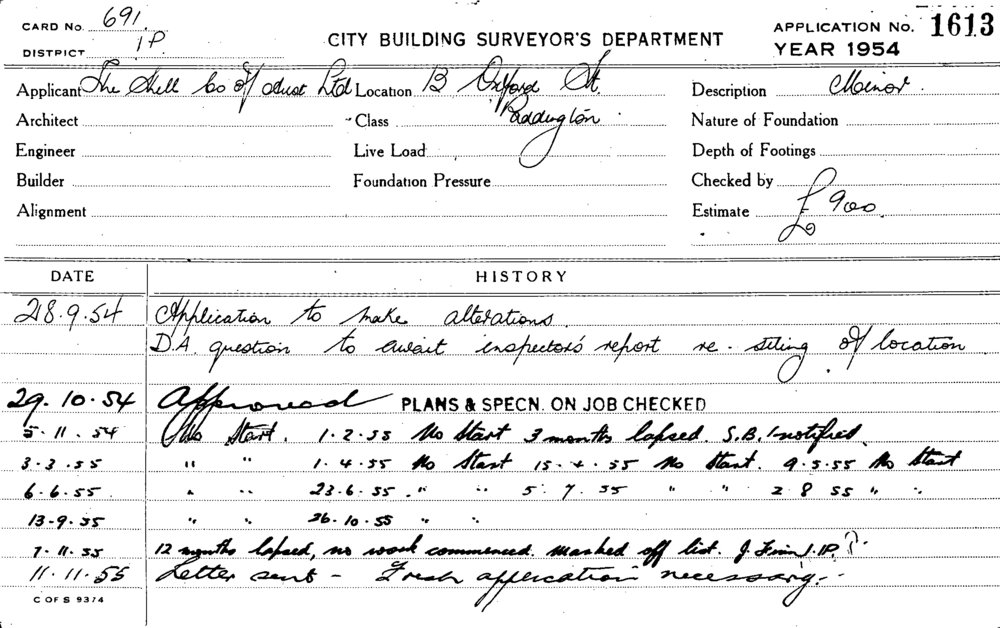 CARD No. 691.
DISTRICT 1P.
CITY BUILDING SURVEYOR'S DEPARTMENT
APPLICATION No. 1613
YEAR 1954
Applicant The Shell Co of Aust Ltd Location B Oxford St. Description Minor.
Architect Class Paddington Nature of Foundation
Engineer Live Load Depth of Footings
Builder Foundation Pressure Checked by
Alignment Estimate £900.
DATE HISTORY
28.9.54 Application to make alterations.
D.A. question to await inspector's report re-siting of location
29.10.54 Approved PLANS & SPECN. ON JOB CHECKED
5.11.54 No Start. 1.2.55 No Start 3 months lapsed. S.B.I notified.
3.3.55 " " 1.4.55 No Start 15.4.55 No Start. 9.5.55 No Start
6.6.55 " " 23.6.55 " " 5.7.55 " " 2.8.55 " "
13.9.55 " " 26.10.55 " "
7.11.55 12 months lapsed, no work commenced. marked off list. J. 1P.
11.11.55 Letter sent - Fresh application necessary.
C OF S 9374